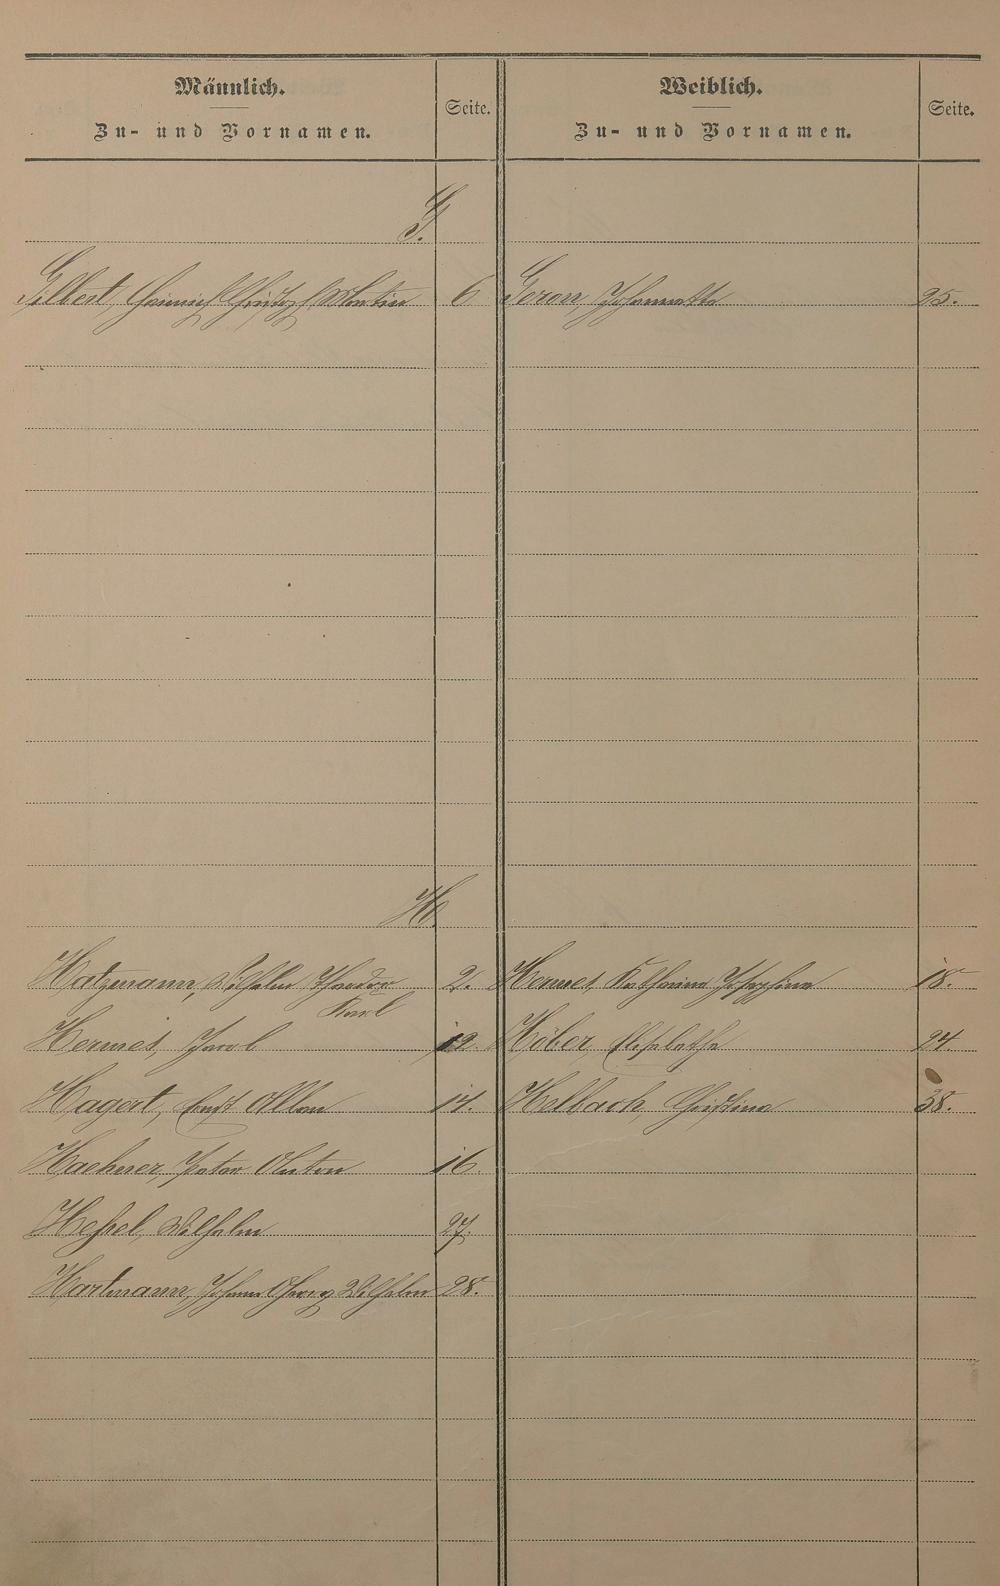 Männlich.
Zu- und Vornamen.
Seite.
Weiblich.
Zu- und Vornamen.
Seite.
G.
Gilbert, Heinrich Christoph Martin 6
Goron, Johannette 25.
H.
Hatzmann, Wilhelm Theodor 2.
Karl
Hermes, Katharina Josephina 18.
Hermes, Jacob 12
Höber, Elisabetha 24.
Hagert, Ernst Alban 14.
Helbach, Christina 38.
Haehner, Peter Anton 16.
Heßel, Wilhelm 27.
Hartmann, Johann Georg Wilhelm 28.